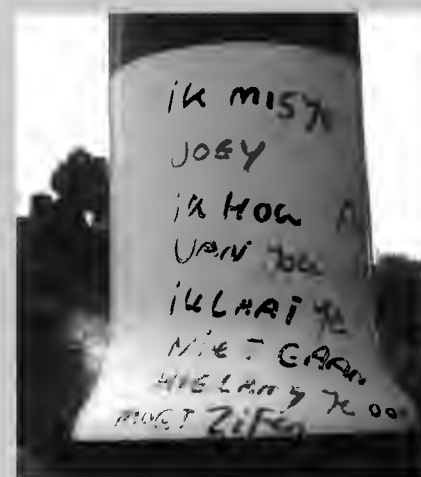 iK MIS je
JOEY
iK HOU
VAN jou
iK LAAT je
NIET GAAN
HIE LANG je OO
MOET ZiTEN